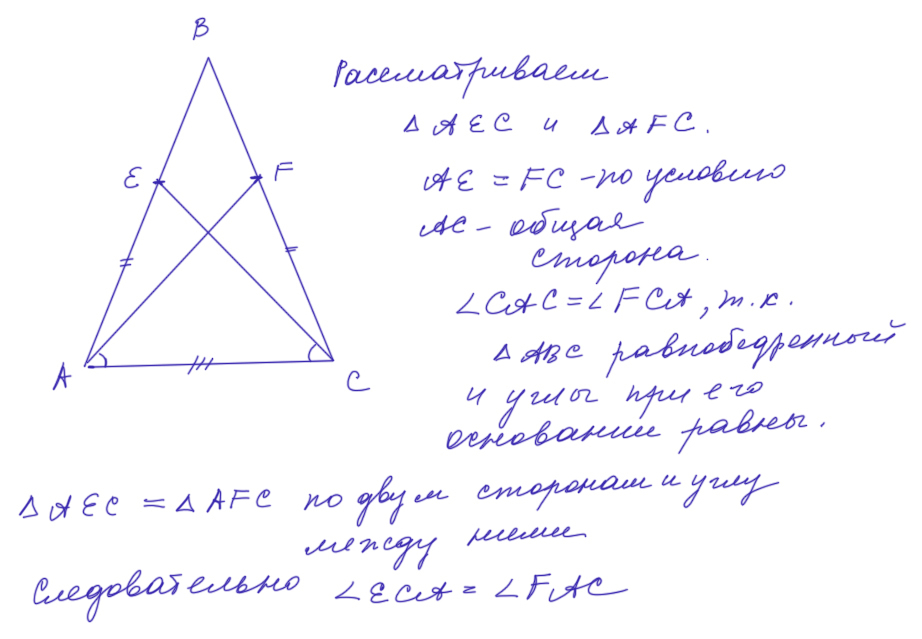 B
E
F
A
C
Рассматриваем
△AEC и △AFC.
AE = FC - по условию
AC - общая
сторона.
∠CAC = ∠FCA, т.к.
△ABC равнобедренный
и углы при его
основании равны.
△AEC = △AFC по двум сторонам и углу
между ними
Следовательно ∠ECA = ∠FAC